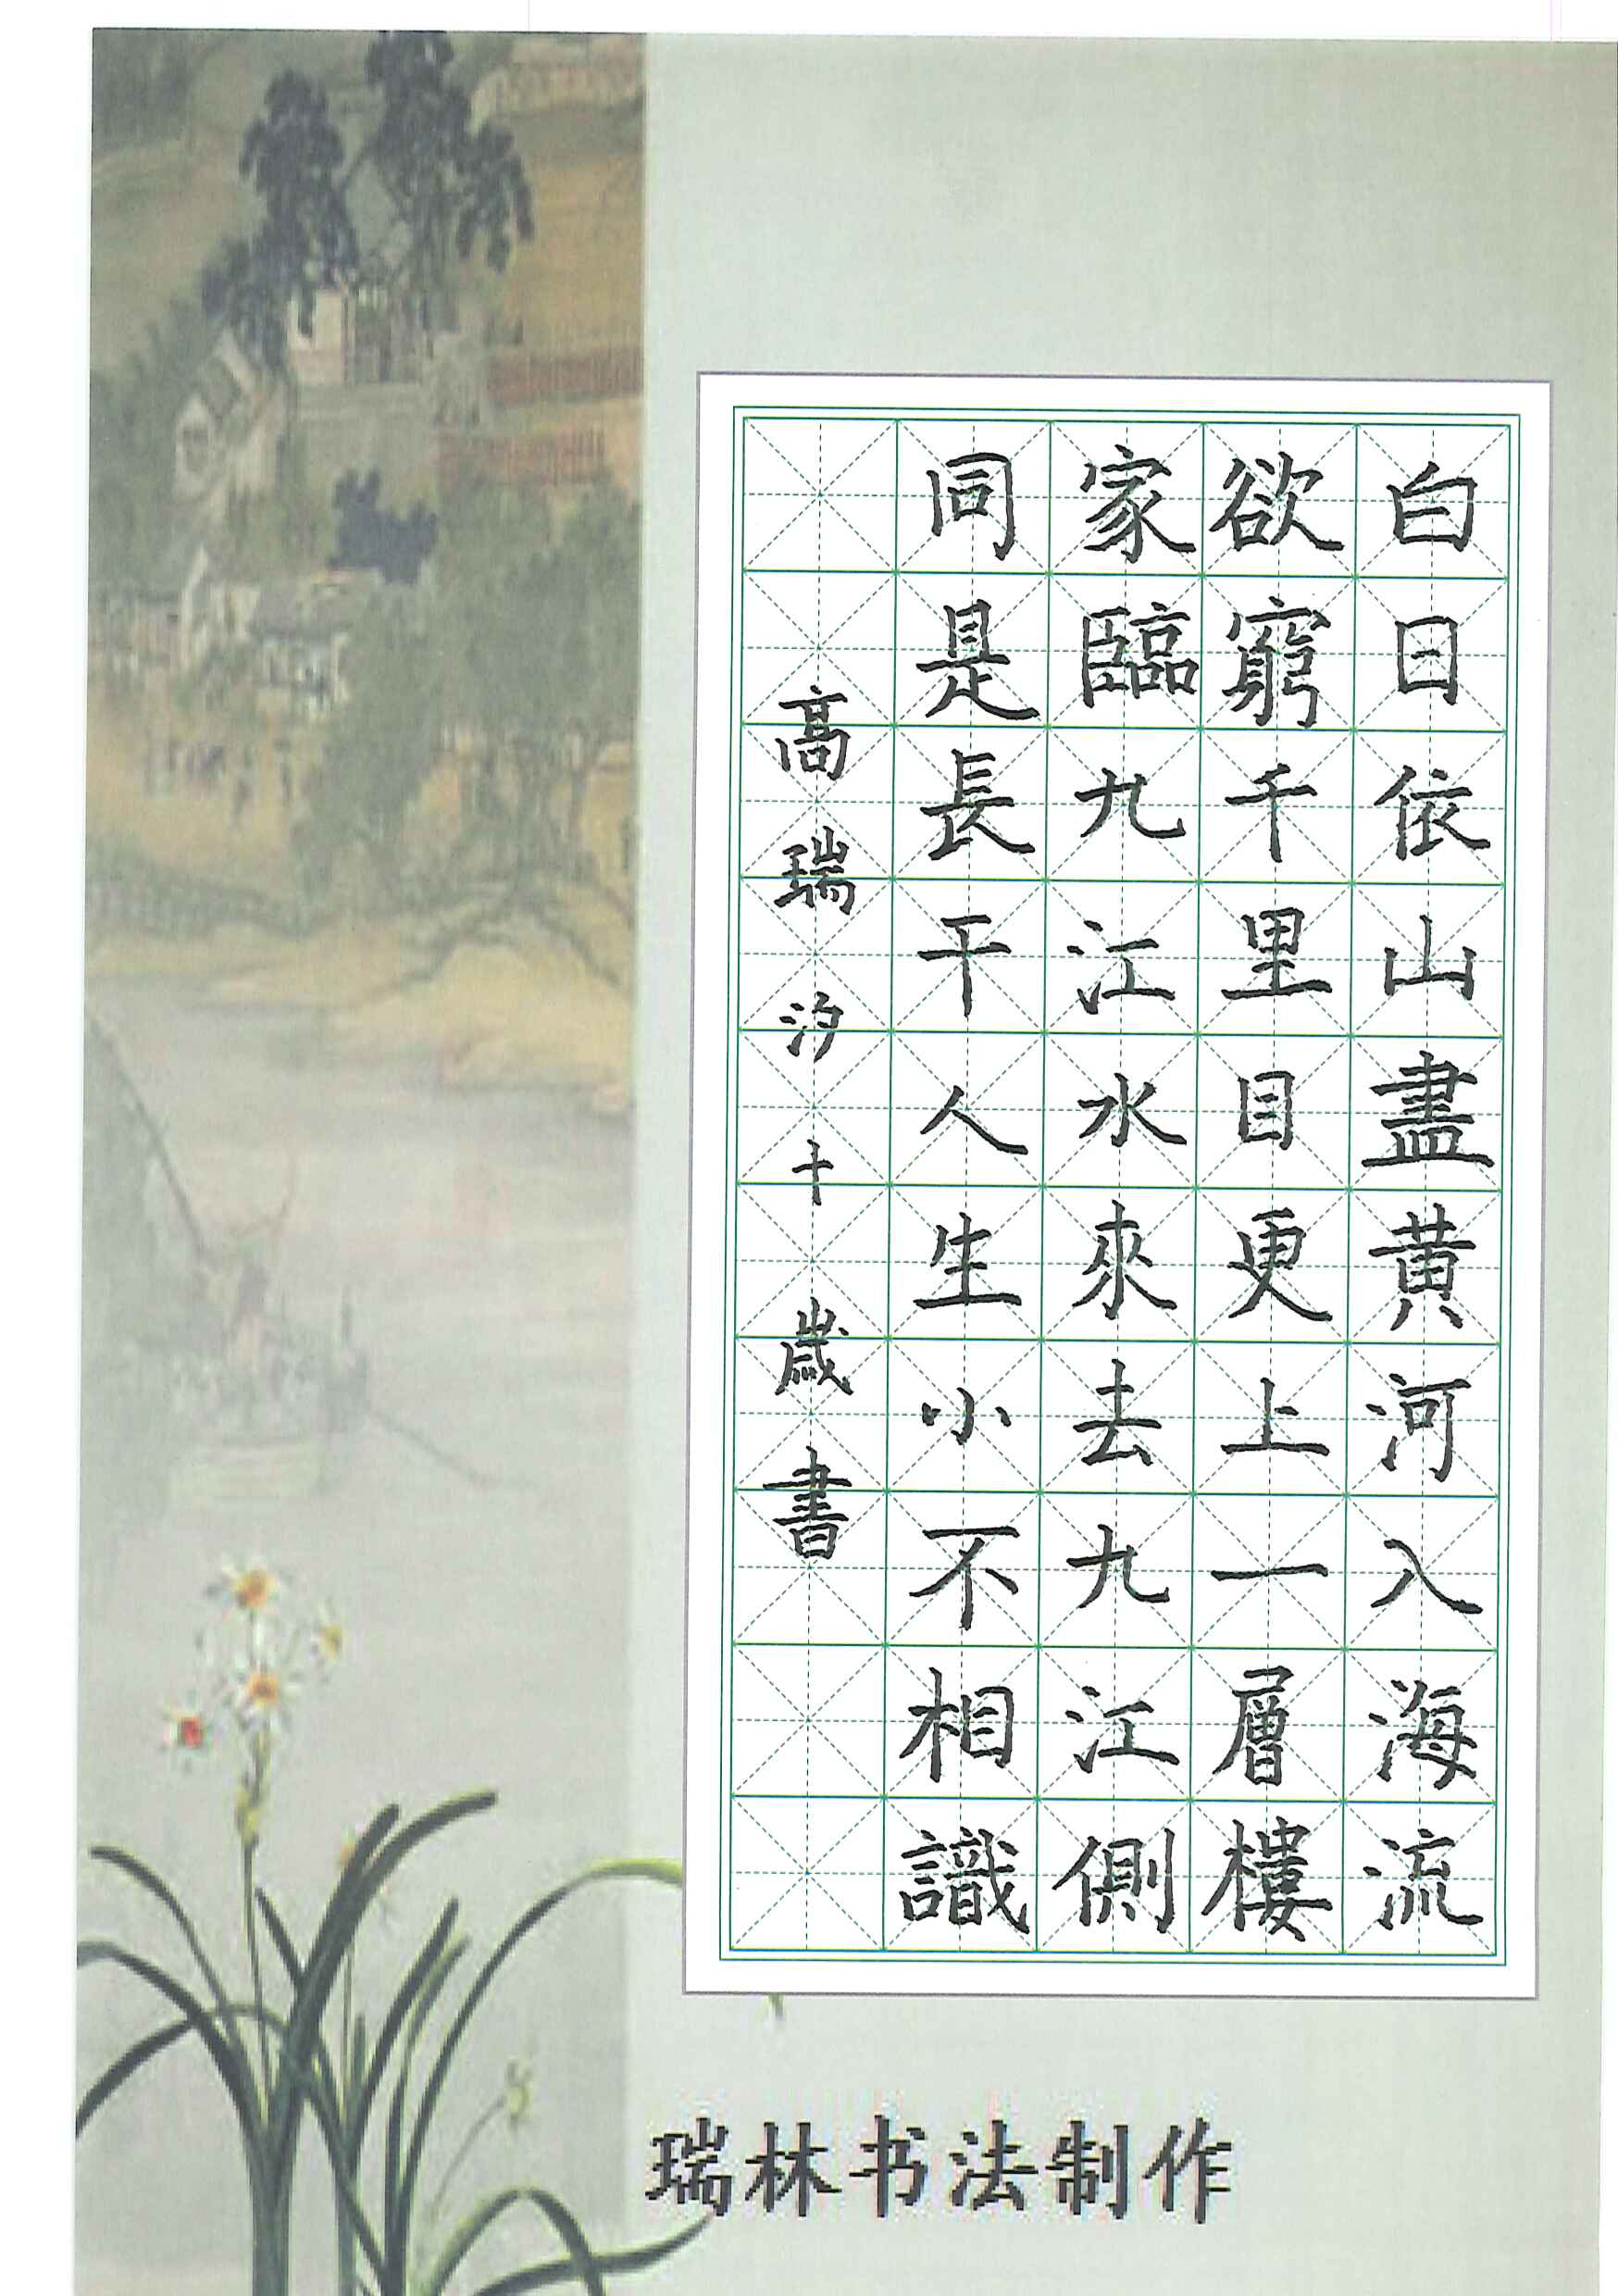 白日依山盡黃河入海流
欲窮千里目更上一層樓
家臨九江水來去九江側
同是長干人生小不相識
高瑞汐十歲書
瑞林书法制作